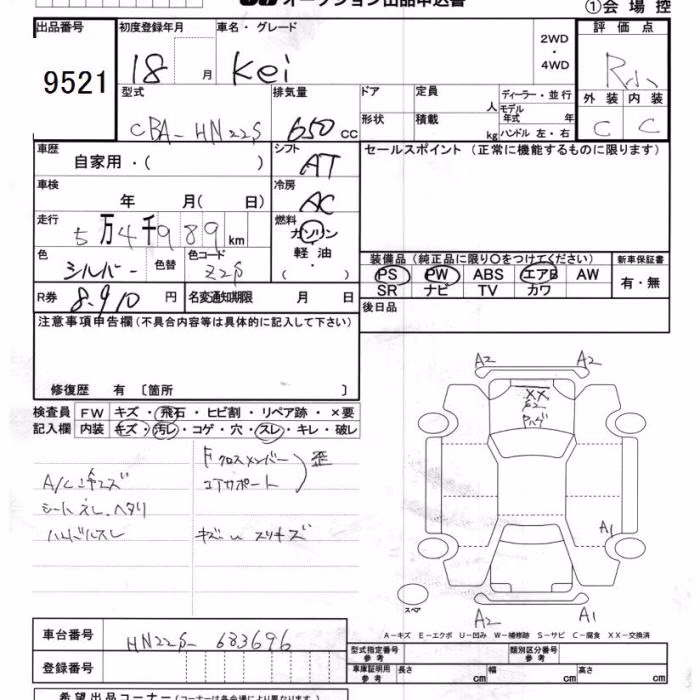 オークション出品申込書
①会場控
出品番号 初度登録年月 車名・グレード 評価点
9521 18 月 Kei 2WD・4WD R小
型式 排気量 ドア 定員 人 ディーラー・並行 外装 内装
CBA-HN22S 650 cc 形状 積載 kg モデル年式 年 ハンドル 左・右 C C
車歴 シフト セールスポイント (正常に機能するものに限ります)
自家用・( ) AT
車検 冷房
年 月( 日) AC
走行 燃料
5万4千989km ガソリン
色 色替 色コード 軽油 装備品 (純正品に限り〇をつけてください) 新車保証書
シルバー Z2S ( ・ ) PS PW ABS エアB AW 有・無
SR ナビ TV カワ
R券 8,910 円 名変通知期限 月 日 後日品
注意事項申告欄 (不具合内容等は具体的に記入して下さい)
修復歴 有 〔箇所 〕
検査員 FW キズ・飛石・ヒビ割・リペア跡・×要
記入欄 内装 キズ・汚レ・コゲ・穴・スレ・キレ・破レ
F クロスメンバー
コアサポート
歪
シートスレ、ヘタリ
ハンドルスレ
A2 A2
XX
A1
A2 A1
スペア
A-キズ E-エクボ U-凹み W-補修跡 S-サビ C-腐食 XX-交換済
車台番号 HN22S-683696
登録番号
型式指定番号 参考 類別区分番号 参考
車庫証明用 参考 長さ cm 幅 cm 高さ cm
希望出品コーナー (コーナーは各会場により異なります)